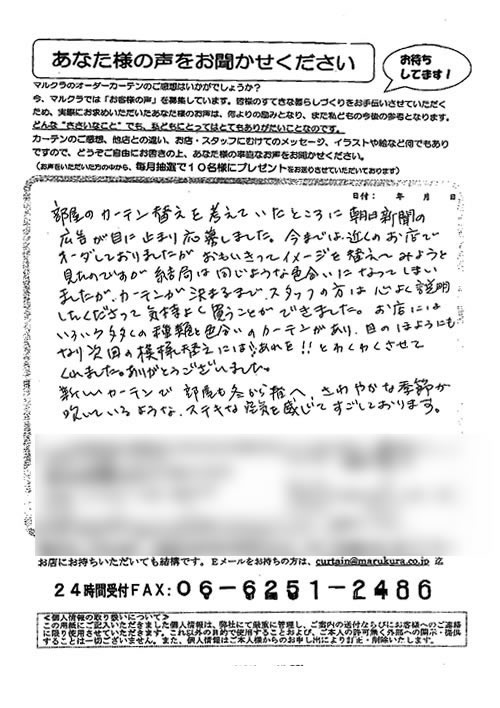 あなた様の声をお聞かせください
お待ち
してます!
マルクラのオーダーカーテンのご感想はいかがでしょうか?
今、マルクラでは「お客様の声」を募集しています。皆様のすてきな暮らしづくりをお手伝いさせていただく
ため、実際にお求めいただいたあなた様のお声は、何よりの励みとなり、また私どもの今後の参考となります。
どんな"ささいなこと"でも、私どもにとってはとてもありがたいことなのです。
カーテンのご感想、他店との違い、お店・スタッフにむけてのメッセージ、イラストや絵など何でもあり
ですので、どうぞご自由にお書きの上、あなた様の率直なお声をお聞かせください。
(お声をいただいた方の中から、毎月抽選で10名様にプレゼントをお送りさせていただいております)
日付: 年 月 日
部屋のカーテン替えを考えていたところに朝日新聞の
広告が目に止まり応募しました。今までは近くのお店で
オーダしておりましたがおもいきってイメージを替えてみようと
見たのですが結局は同じような色合いになってしまい
ましたが、カーテンが決まるまで、スタッフの方は心よく説明
したくださって気持よく買うことができました。お店には
いろいろ多くの種類と色合いのカーテンがあり、目のほようにも
なり次回の模様替えにはあれを!!とわくわくさせて
くれました。ありがとうございました。
新しいカーテンで部屋も冬から春へ、さわやかな季節が
吹いているような、ステキな空気を感じてすごしております。
お店にお持ちいただいても結構です。Eメールをお持ちの方は、curtain@marukura.co.jp 迄
24時間受付FAX:06-6251-2486
<個人情報の取り扱いについて>
この用紙にご記入いただきました個人情報は、弊社にて厳重に管理し、ご案内の送付ならびにお客様へのご連絡
に限り使用させていただきます。これ以外の目的で使用することおよび、ご本人の許可無く外部への開示・提供
することは一切ございません。また、個人情報はご本人様からのお申し出により訂正・削除いたします。